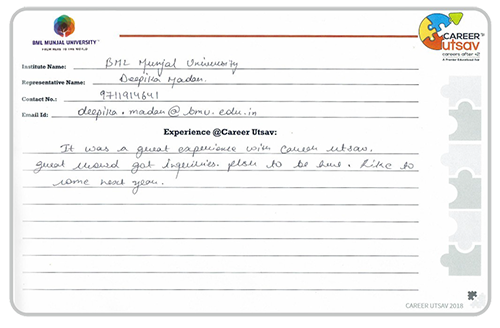 BML MUNJAL UNIVERSITY™
FROM HERE TO THE WORLD
CAREER
utsav
careers after +2
A Premier Educational Fair
Institute Name: BML Munjal University
Representative Name: Deepika Madan.
Contact No.: 9711914641
Email Id: deepika.madan@bmu.edu.in
Experience @Career Utsav:
It was a great experience with Career utsav.
great crowd got inquiries. to be here. Like to
come next year.
CAREER UTSAV 2018